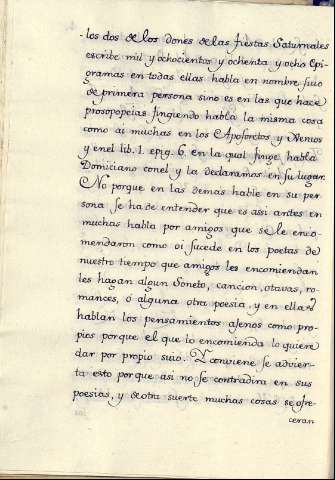 los dos de los dones de las fiestas Saturnales
escribe mil y ochocientos y ochenta y ocho Epi
gramas en todas ellas habla en nombre suio
de primera persona sino es en las que hace
prosopopeias fingiendo habla la misma cosa
como ai muchas en los Apoforetos y Xenios
y en el lib. 1. epig. 6. en la qual finge habla
Domiciano con el y la declaramos en su lugar.
No porque en las demas hable en su per
sona se ha de entender que es assi antes en
muchas habla por amigos que se le enco-
mendaron como oi sucede en los poetas de
nuestro tiempo que amigos les encomiendan
les hagan algun Soneto, cancion, otavas, ro-
mances, ó alguna otra poesia y en ellas
hablan los pensamientos ajenos como pro-
pios porque el que lo encomienda lo quiere
dar por propio suio. Y conviene se advier-
ta esto porque asi no se contradira en sus
poesias, y de otra suerte muchas cosas se ofre-
ceran